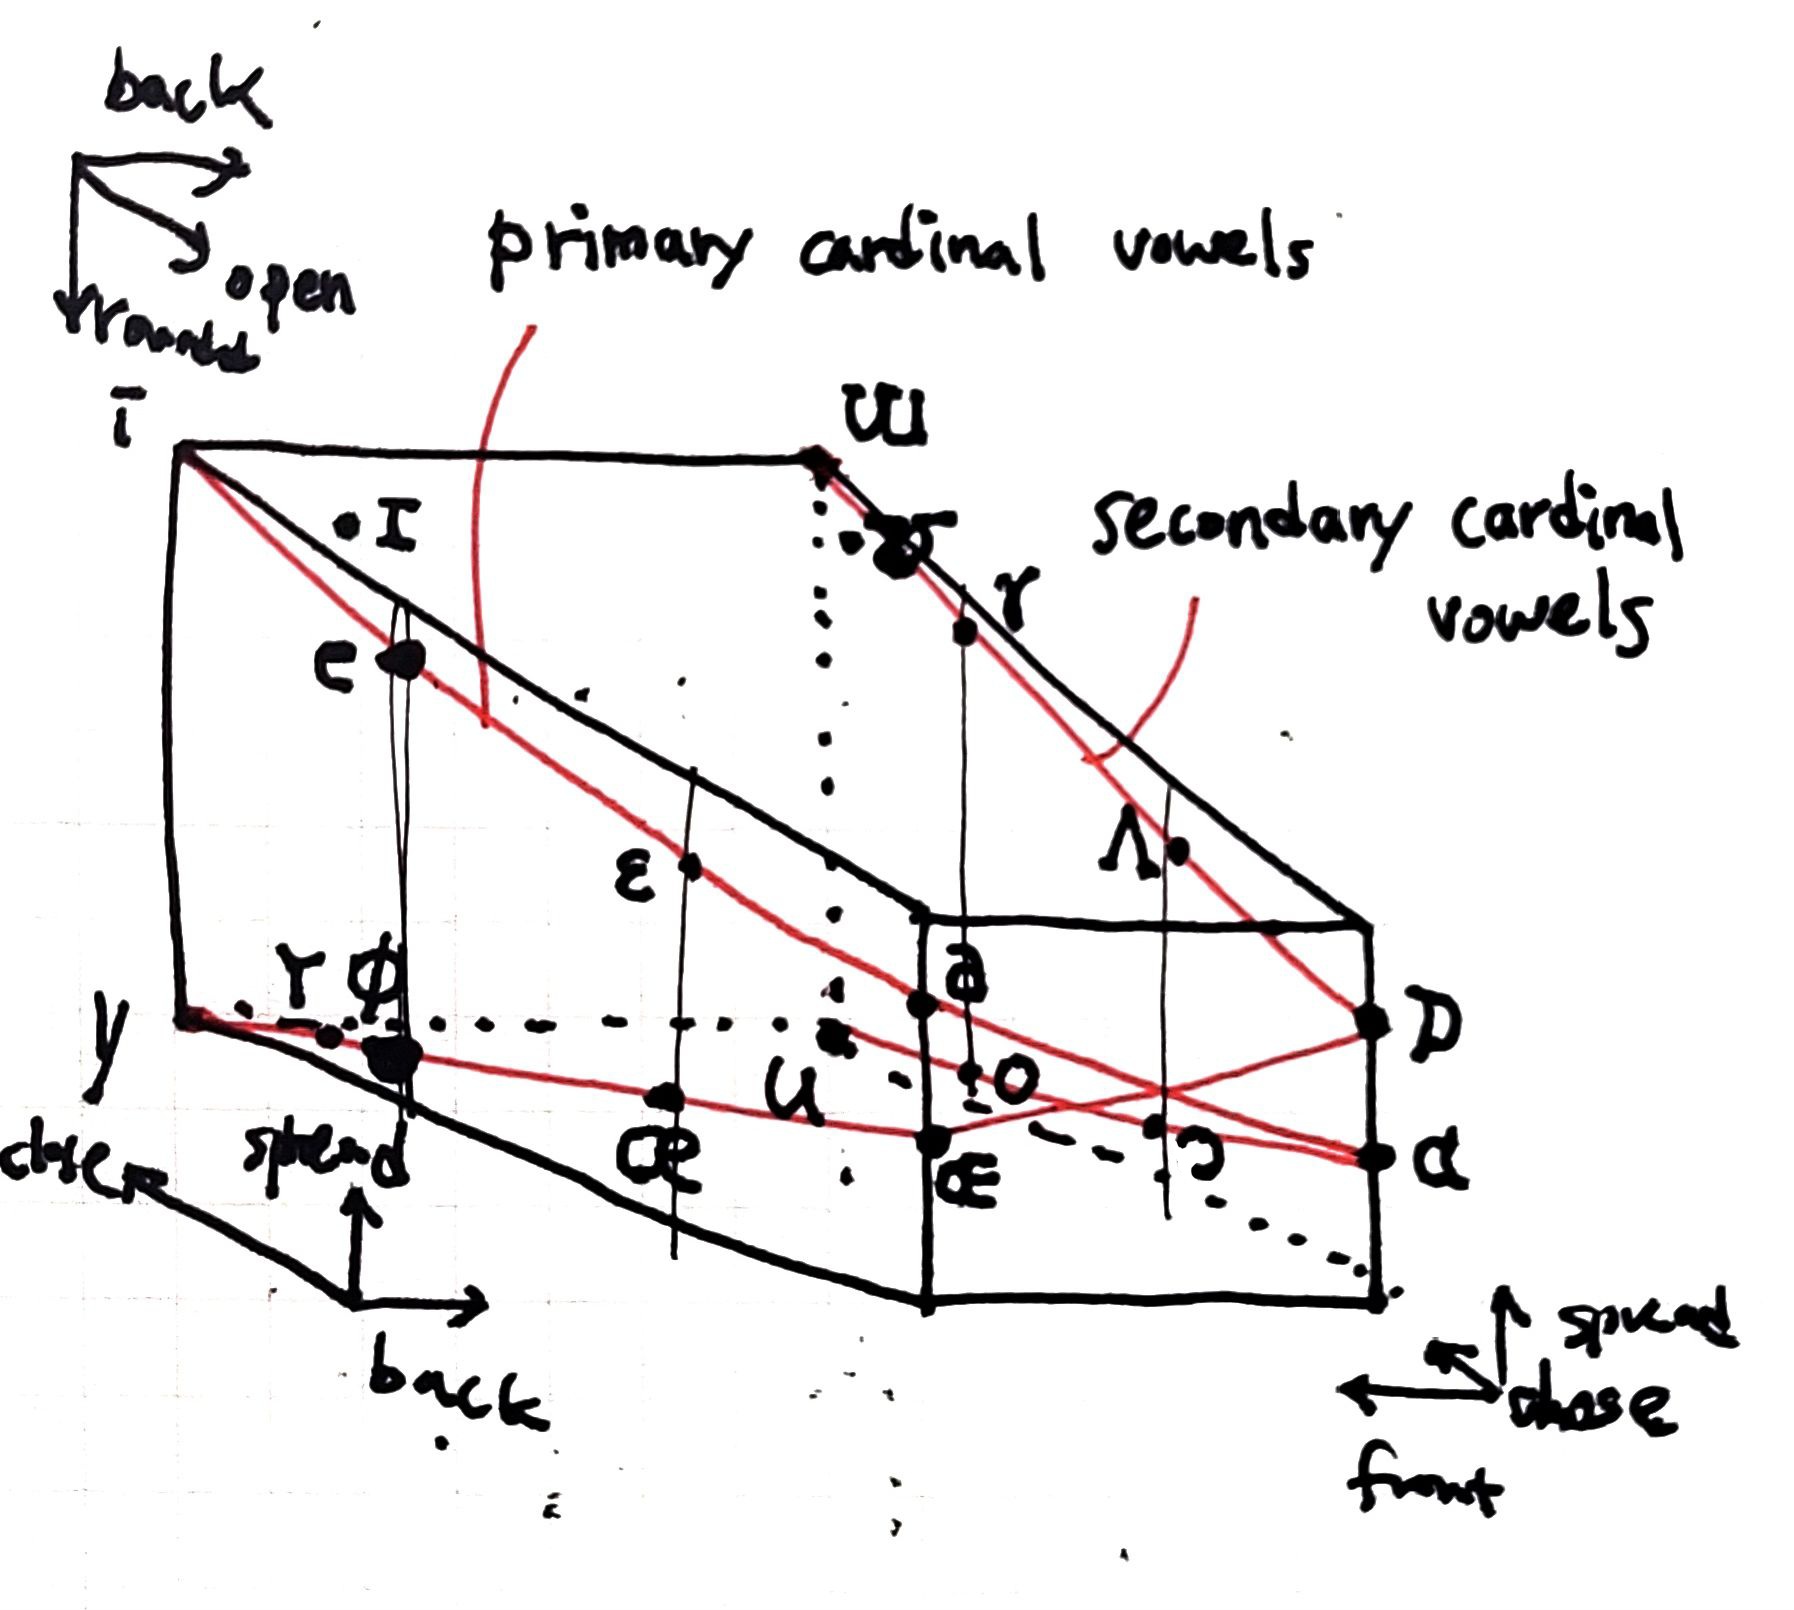 back
open
round
primary cardinal vowels
i
ɯ
I
ʊ
secondary cardinal
vowels
ɤ
e
ʌ
ɛ
a
Y
ø
y
D
o
u
close
spread
œ
Œ
ɔ
ɑ
back
spread
close
front